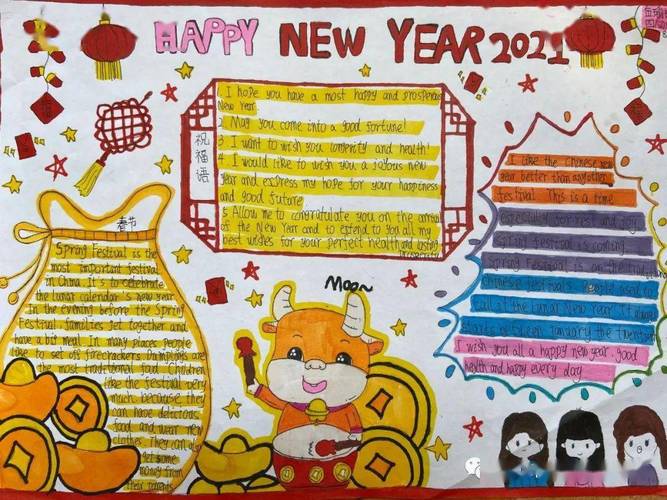 HAPPY NEW YEAR 2021
1. I hope you have a most happy and prosperous
New year
2. May you come into a good fortune!
3. I want to wish you longevity and health!
4. I would like to wish you a joyous new
year and express my hope for your happiness
and good future
5. Allow me to congratulate you on the arrival
of the New Year and to extend to you all my
best wishes for your perfect health and lasting
prosperity
祝
福
语
I like the chinese new
year better than any other
festival This is a time
especially to rest and joy
spring festival is coming
Spring Festival is on the
chinese festivals People used to
call it the lunar New year It always
starts between January the
I wish you all a happy new year, good
health and happy every day
春节
Spring Festival is the
most important festival
in China It's to celebrate
the lunar calendar's new year
In the evening before the Spring
Festival families get together and
have a big meal In many places people
like to set off firecrackers Dumplings are
the most traditional food Children
like the festival very
much, because they
can have delicious
food and wear new
clothes. They can also
get some
money from
their parents
Moo~